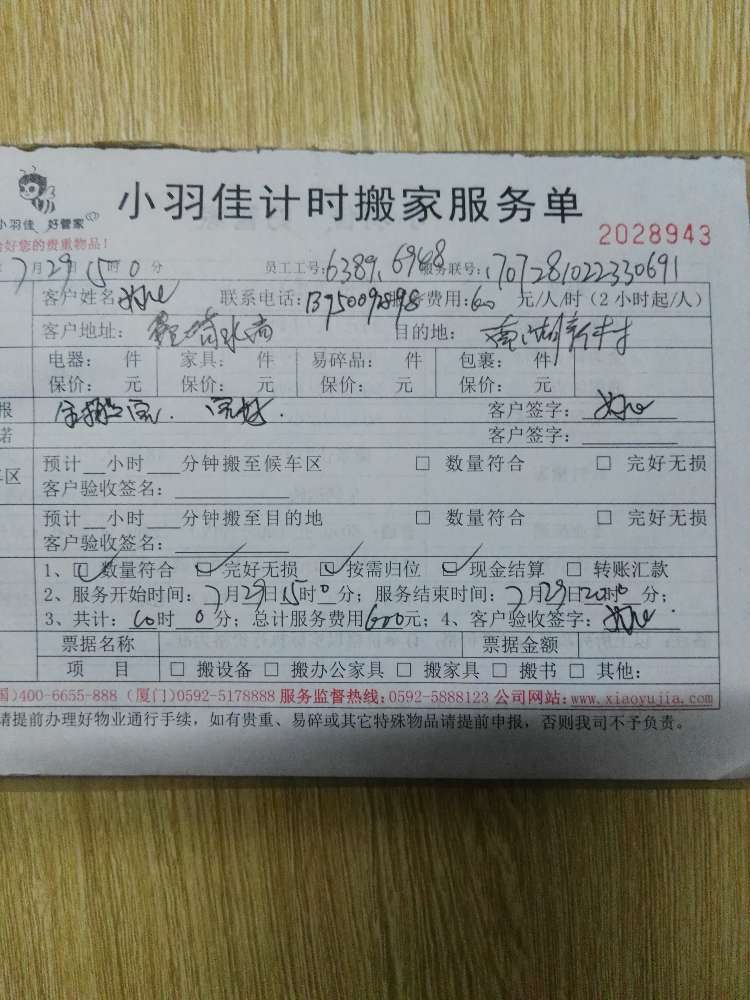 小羽佳计时搬家服务单
小羽佳 好管家
好您的贵重物品！
2028943
7月29日15时0分 员工工号：6389，6948 服务联号：170728102233 0691
客户姓名 联系电话： 费用：60元/人/时（2小时起/人）
客户地址： 目的地：南湖新村
电器： 件 家具： 件 易碎品： 件 包裹： 件
保价： 元 保价： 元 保价： 元 保价： 元
报 完好. 客户签字：
诺 客户签字：
预计__小时___分钟搬至候车区 □ 数量符合 □ 完好无损
车区 客户验收签名：
预计__小时___分钟搬至目的地 □ 数量符合 □ 完好无损
客户验收签名：
1、☑数量符合 ☑完好无损 ☑按需归位 ☑现金结算 □ 转账汇款
2、服务开始时间：7月29日15时0分；服务结束时间：7月29日20时0分；
3、共计：10时0分；总计服务费用600元；4、客户验收签字：
票据名称 票据金额
项 目 □ 搬设备 □ 搬办公家具 □ 搬家具 □ 搬书 □ 其他：
国)400-6655-888 (厦门)0592-5178888 服务监督热线:0592-5888123 公司网站:www.xiaoyujia.com
请提前办理好物业通行手续，如有贵重、易碎或其它特殊物品请提前申报，否则我司不予负责。